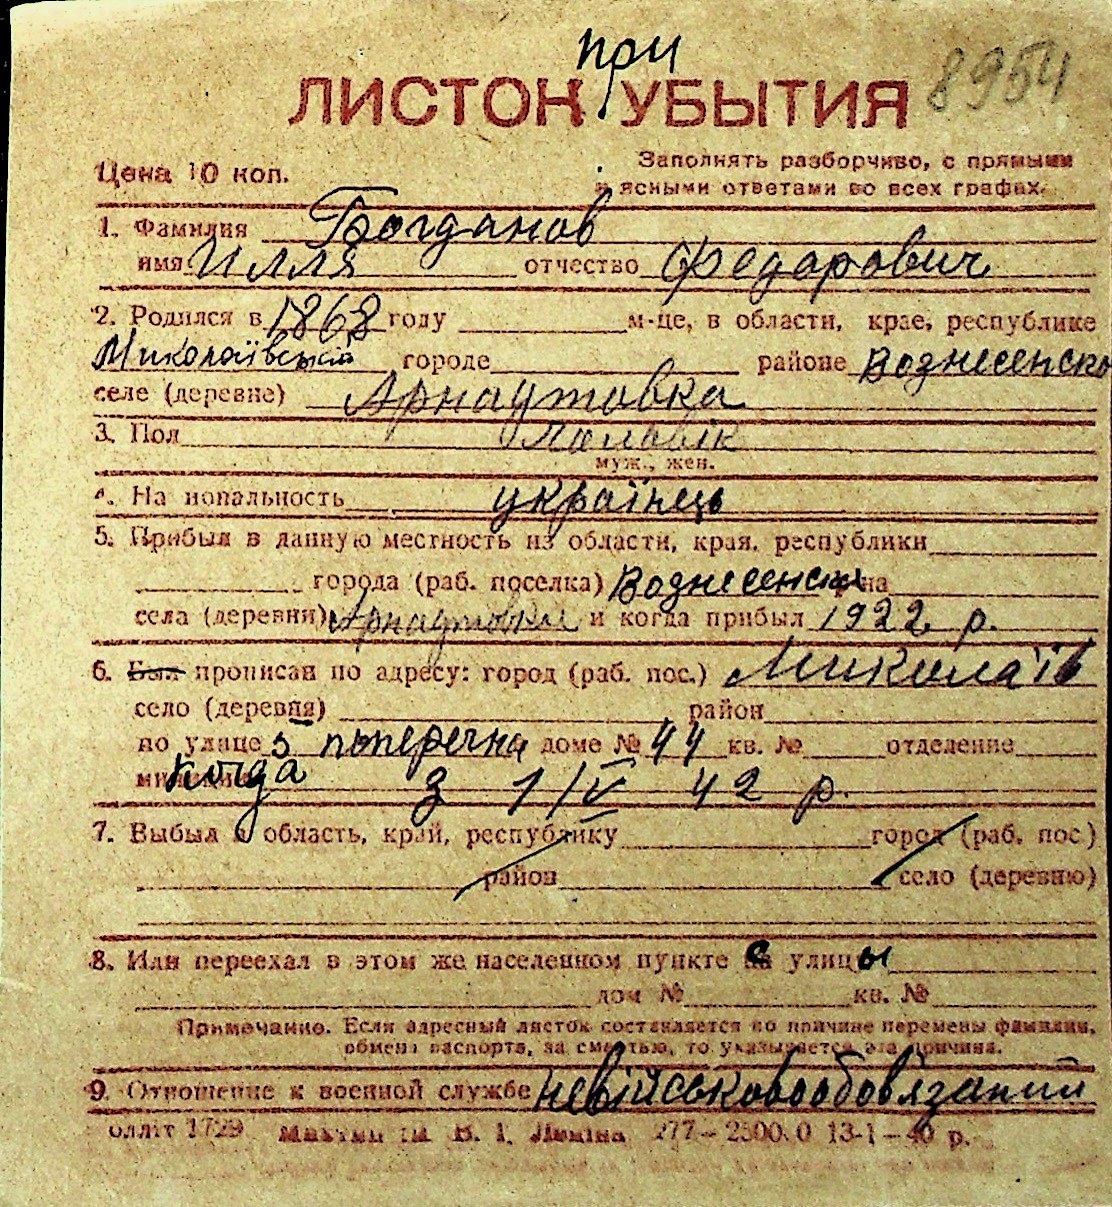 при
ЛИСТОК УБЫТИЯ 8954
Цена 10 коп. Заполнять разборчиво, с прямыми
и ясными ответами во всех графах.
1. Фамилия Богданов
имя Илля отчество Федарович
2. Родился в 1868 году м-це, в области, крае, республике
Миколаївській городе районе Вознесенско
селе (деревне) Арнаутовка
3. Пол чоловік
муж., жен.
4. На иональность українець
5. Прибыл в данную местность из области, края, республики
города (раб. поселка) Вознесенск на
села (деревни) Арнаутовки и когда прибыл 1922 р.
6. Был прописан по адресу: город (раб. пос.) Миколаїв
село (деревня) район
по улице 5 поперечна доме № 44 кв. № отделение
милиции когда з 1/IV 42 р.
7. Выбыл в область, край, республику город (раб. пос)
район село (деревню)
8. Или переехал в этом же населенном пункте с улицы
дом № кв. №
Примечание. Если адресный листок составляется по причине перемены фамилии,
обмена паспорта, за смертью, то указывается эта причина.
9. Отношение к военной службе невійськовообов'язаний
олліт 1729 В. І. Леніна 277—2500.0 13-1—40 р.